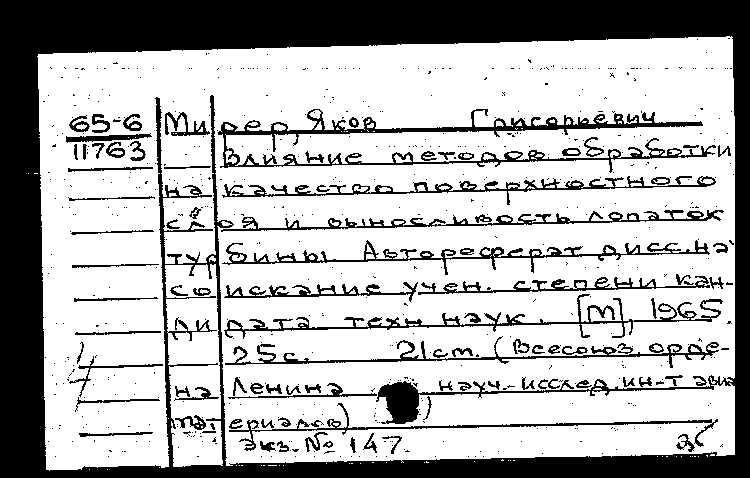 65-6 Мирер, Яков Григорьевич
11763 Влияние методов обработки
на качество поверхностного
слоя и выносливость лопаток
турбины. Автореферат дисс. на
соискание учен. степени кан-
дидата техн. наук. [М], 1965.
25 с. 21 см. (Всесоюз. орде-
на Ленина науч.-исслед. ин-т авиа
материалов)
Экз. № 147.